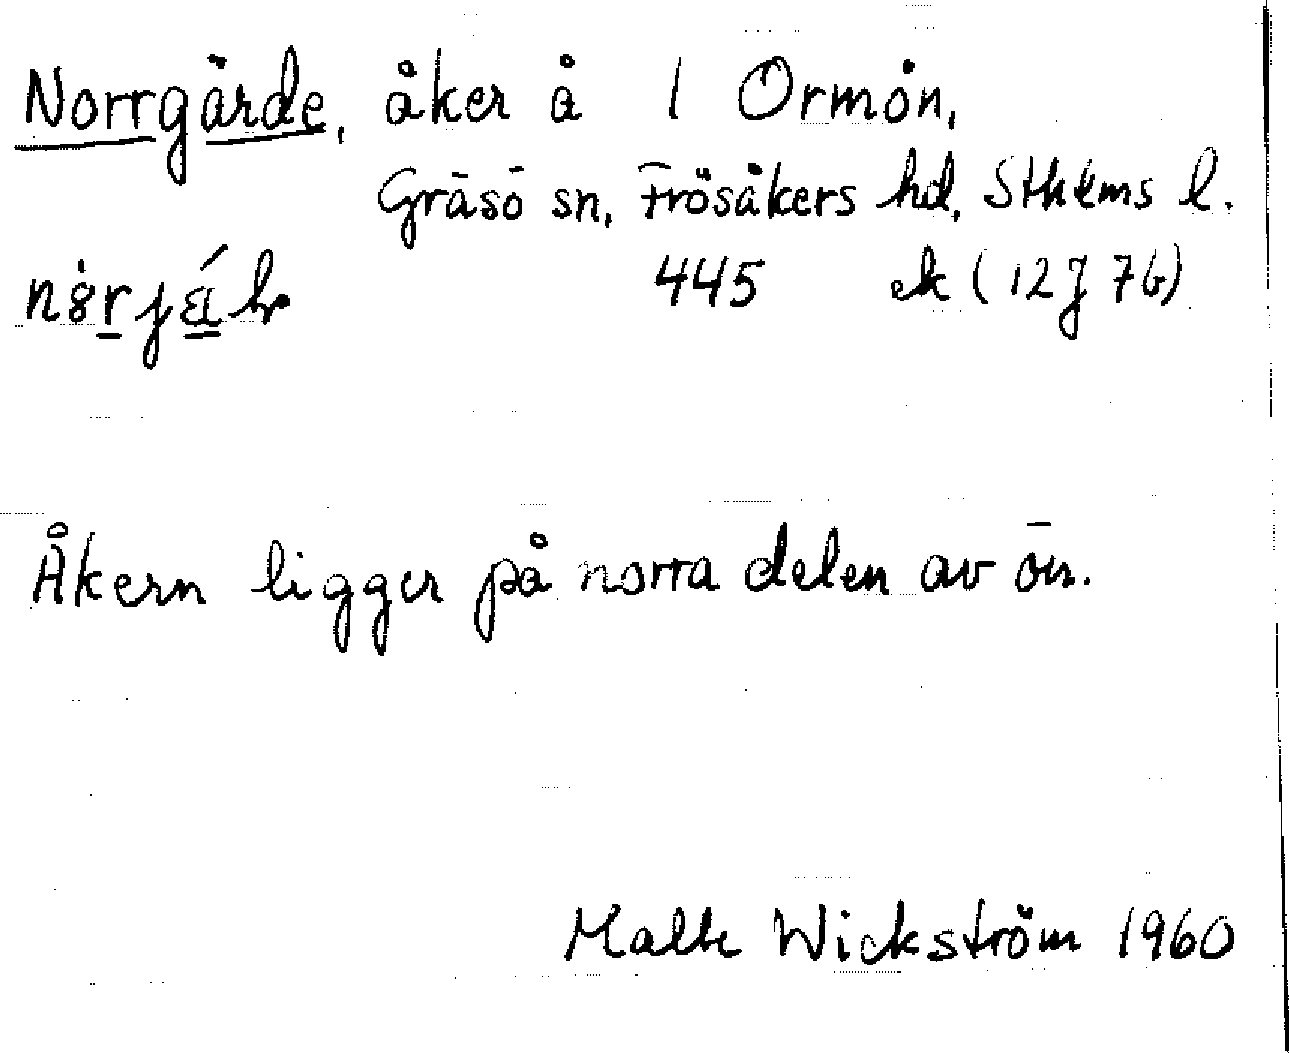 Norrgärde, åker å 1 Ormön,
Gräsö sn, Frösåkers hd, Sthlms l.
445 ek (12J 7b)
Åkern ligger på norra delen av ön.
Malte Wickström 1960